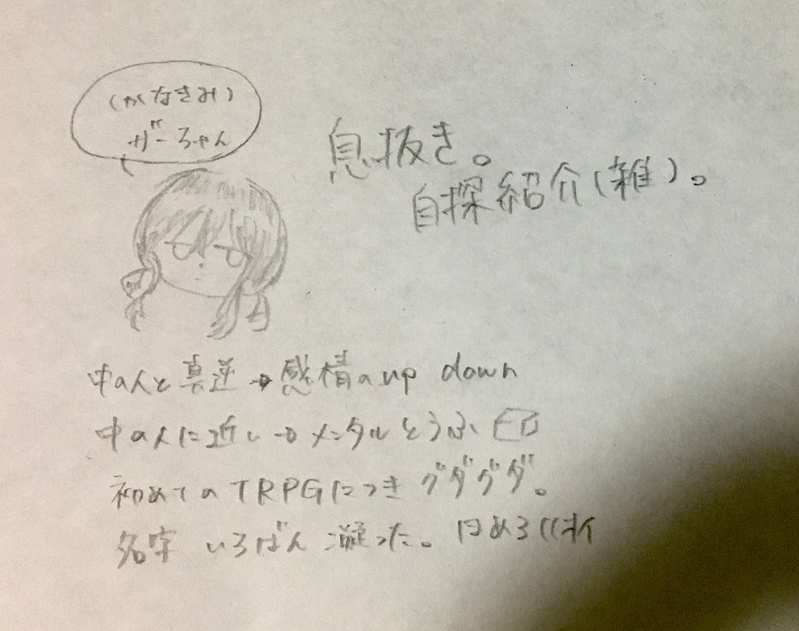 (かなきみ)
がーちゃん
息抜き。
自探紹介(雑)。
中の人と真逆→感情のup down
中の人に近い→メンタルとうふ
初めてのTRPGにつきグダグダ。
名字 いちばん 凝った。ほめろ((